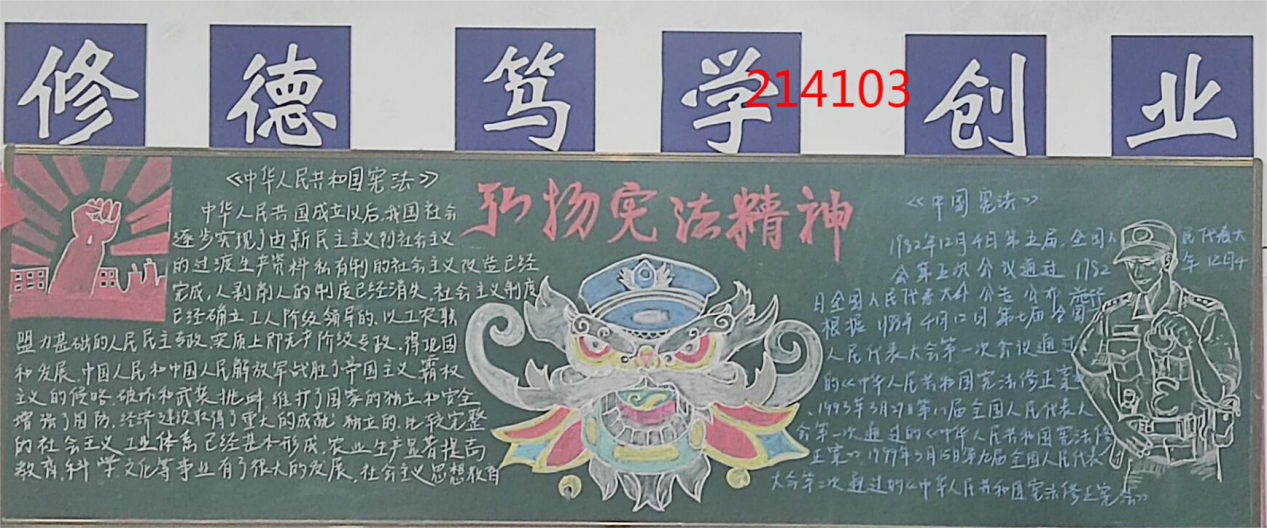 修德笃学创业
214103
弘扬宪法精神
《中华人民共和国宪法》
中华人民共和国成立以后,我国社会
逐步实现了由新民主主义到社会主义
的过渡生产资料私有制的社会主义改造已经
完成,人剥削人的制度已经消失,社会主义制度
已经确立工人阶级领导的,以工农联
盟为基础的人民民主专政,实质上即无产阶级专政,得巩固
和发展,中国人民和中国人民解放军战胜了帝国主义、霸权
主义的侵略、破坏和武装挑衅维护了国家的独立和安全
增强了国防,经济建设取得了重大的成就,独立的,比较完整
的社会主义工业体系已经基本形成,农业生产显著提高
教育,科学文化等事业有了很大的发展,社会主义思想教育
《中国宪法》
1982年12月4日第五届全国人民代表大
会第五次会议通过1982年12月4
日全国人民代表大会公告公布施行
根据1988年4月12日第七届全国
人民代表大会第一次会议通过
的《中华人民共和国宪法修正案》
1993年3月29日第八届全国人民代表大
会第一次通过的《中华人民共和国宪法修
正案》1999年3月15日第九届全国人民代表
大会第二次通过的《中华人民共和国宪法修正宪法》